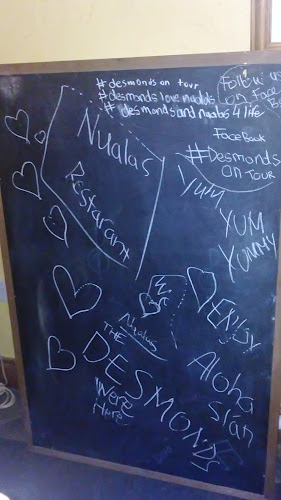 #desmonds on tour
#desmonds love nualas
#desmondsand nualas 4 life
Follow us
on Face
Bo
FaceBook
#Desmonds
ON TOUR
Nualas
Restarant
YUM
YUM
YUMMY
We
Nualas
THE
DESMONDS
Were
Here
Aloha
slán